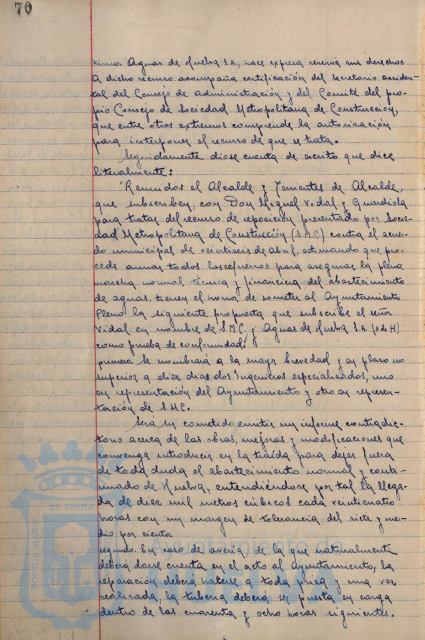 70
timo. Aguas de Huelva S.A., hace expresa reserva sus derechos
A dicho recurso acompaña certificación del secretario acciden-
tal del Consejo de administración y del Comité del pro-
pio Consejo de Sociedad Metropolitana de Construcción,
que entre otros extremos comprende la autorización
para interponer el recurso de que se trata.
Seguidamente diose cuenta de escrito que dice
literalmente:
"Reunidos el Alcalde y Tenientes de Alcalde,
que subscriben, con Don Miguel Vidal y Guardiola
para tratar del recurso de reposición presentado por Socie-
dad Metropolitana de Construcción (S.M.C) contra el acuer-
do municipal de veintiseis de abril, estimando que pro-
cede aunar todos los esfuerzos para asegurar la plena
marcha normal técnica y financiera del abastecimiento
de aguas, tienen el honor de someter al Ayuntamiento
Pleno la siguiente propuesta que subscribe el señor
Vidal en nombre de S.M.C. y Aguas de Huelva S.A. (A de H)
como prueba de conformidad:
primero. Se nombrará a la mayor brevedad y en plazo no
superior a diez días dos ingenieros especializados, uno
en representación del Ayuntamiento y otro en represen-
tación de S.M.C.
Será su cometido emitir un informe contradic-
torio acerca de las obras, mejoras y modificaciones que
convenga introducir en la traída para dejar fuera
de toda duda el abastecimiento normal y conti-
nuado de Huelva, entendiéndose por tal la llega-
da de diez mil metros cúbicos cada veinticuatro
horas con un margen de tolerancia del siete y me-
dio por ciento.
segundo. En caso de avería de la que naturalmente
deberá darse cuenta en el acto al Ayuntamiento, la
reparación deberá hacerse a toda prisa y una vez
realizada, la tubería deberá ser puesta en carga
dentro de las cuarenta y ocho horas siguientes.
Ayuntamiento de